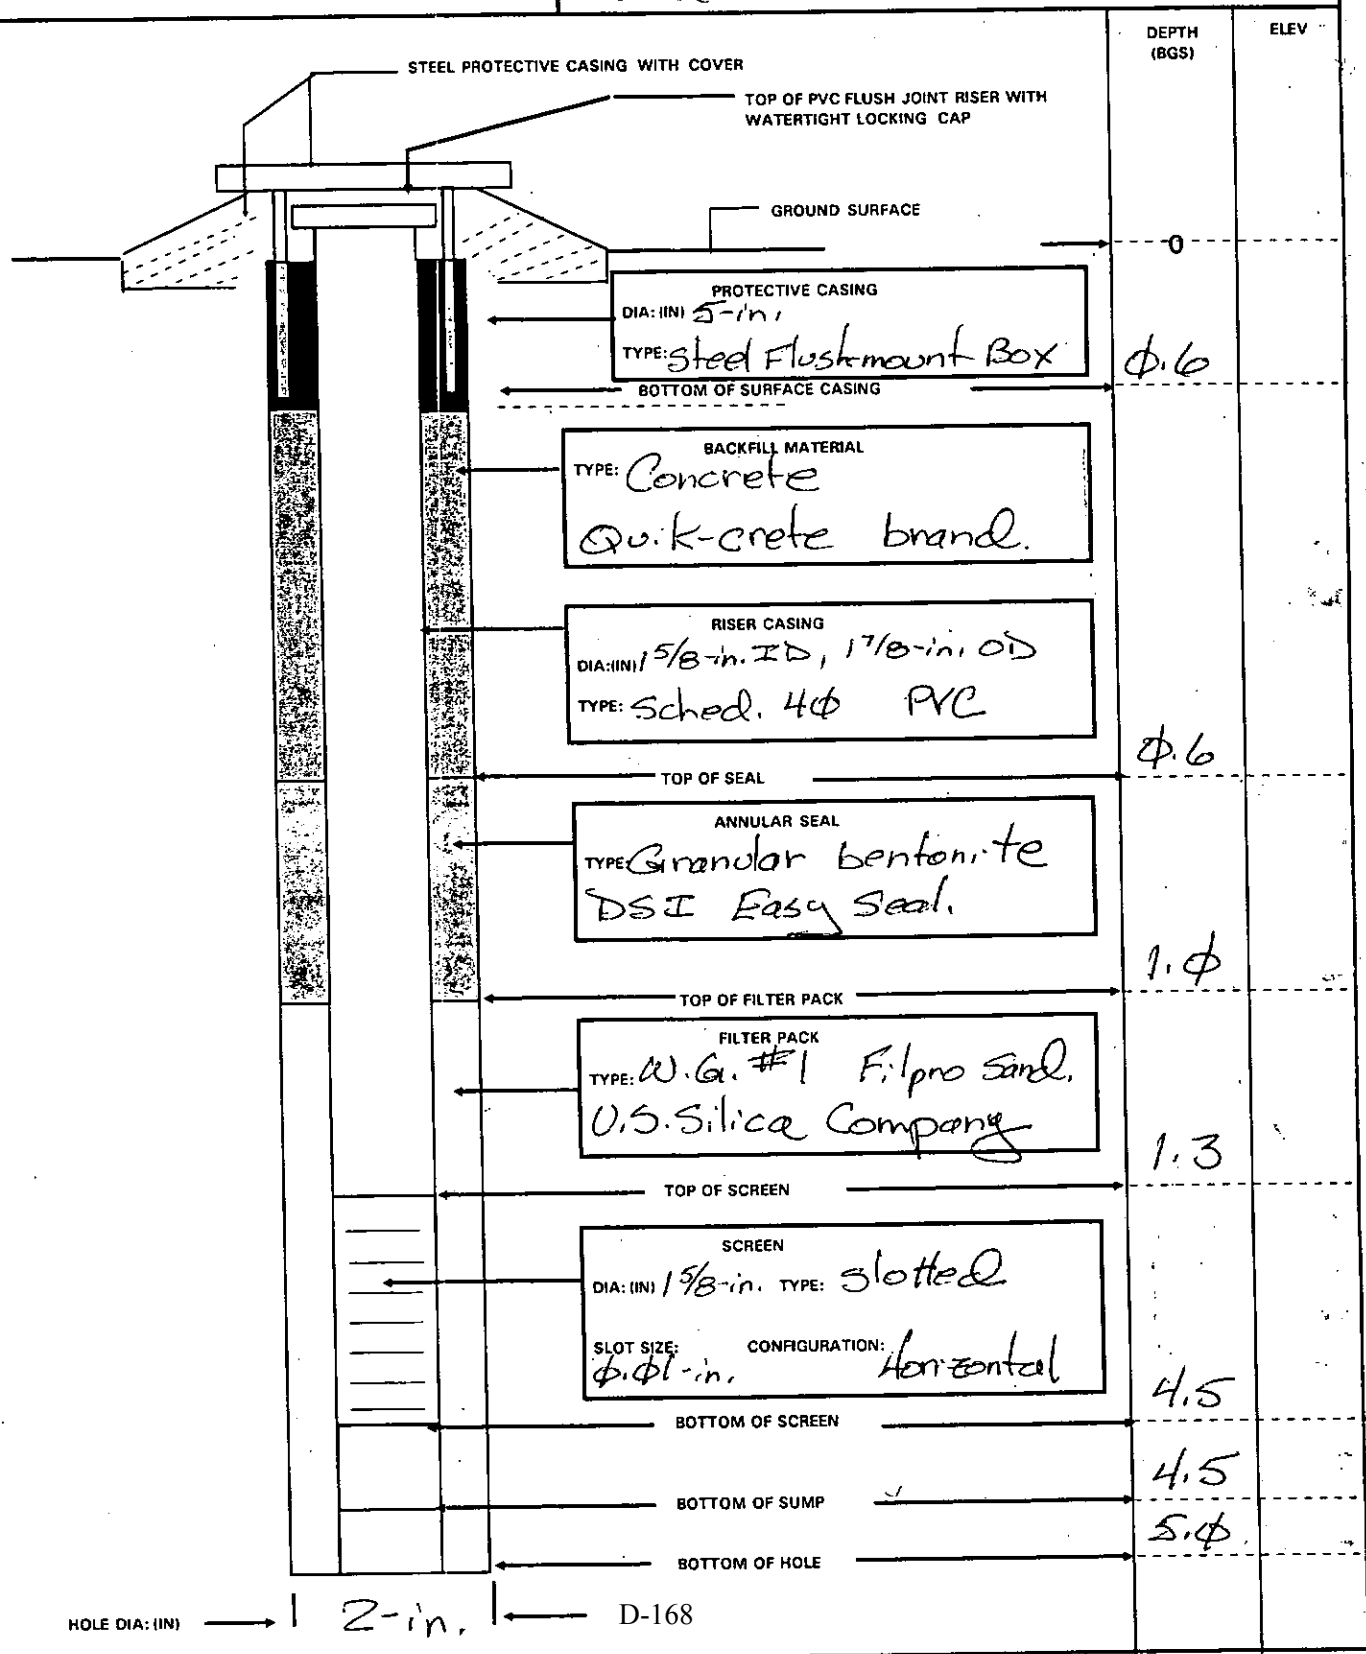 DEPTH
(BGS)
ELEV
STEEL PROTECTIVE CASING WITH COVER
TOP OF PVC FLUSH JOINT RISER WITH
WATERTIGHT LOCKING CAP
GROUND SURFACE
0
PROTECTIVE CASING
DIA: (IN) 5-in.
TYPE: Steel Flushmount Box
0.6
BOTTOM OF SURFACE CASING
BACKFILL MATERIAL
TYPE: Concrete
Quik-crete brand.
RISER CASING
DIA:(IN) 1 5/8-in. ID, 1 7/8-in. OD
TYPE: Sched. 40 PVC
0.6
TOP OF SEAL
ANNULAR SEAL
TYPE: Granular bentonite
DSI Easy Seal.
1.0
TOP OF FILTER PACK
FILTER PACK
TYPE: W.G. #1 Filpro Sand.
U.S. Silica Company
1.3
TOP OF SCREEN
SCREEN
DIA: (IN) 1 5/8-in. TYPE: Slotted
SLOT SIZE: CONFIGURATION:
0.01-in. Horizontal
4.5
BOTTOM OF SCREEN
4.5
BOTTOM OF SUMP
5.0
BOTTOM OF HOLE
HOLE DIA: (IN) 2-in. D-168